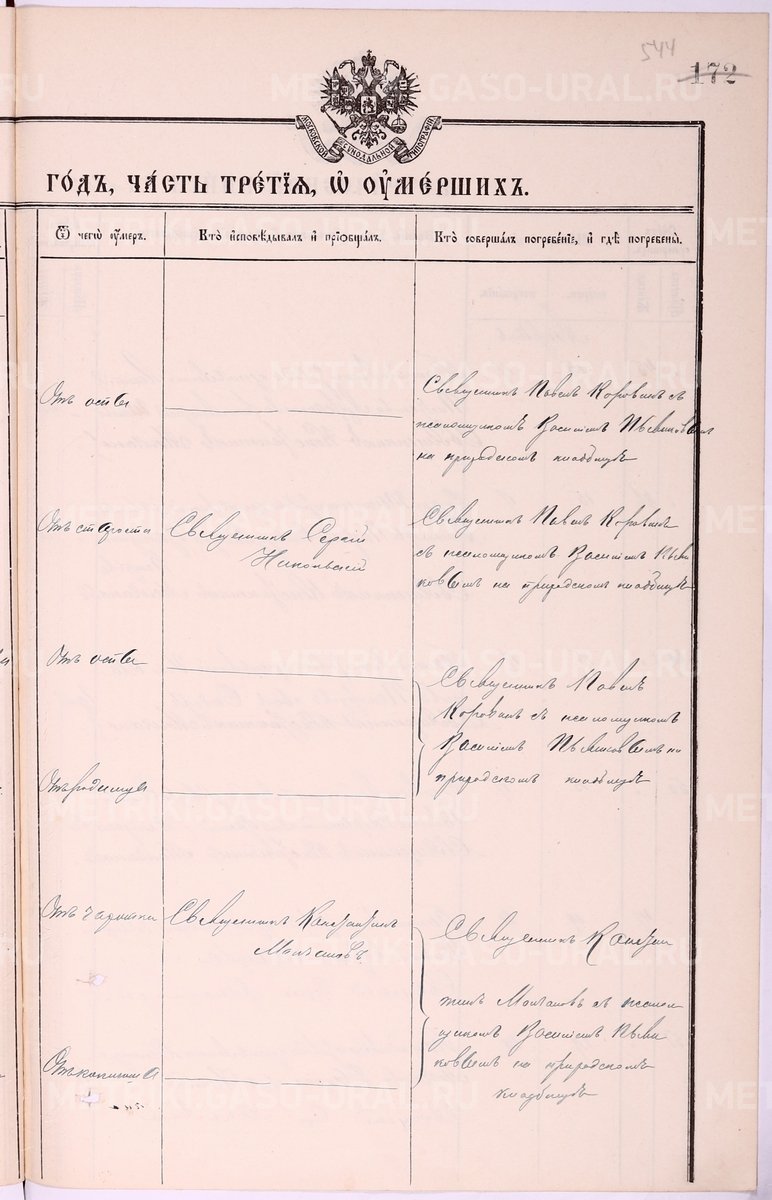 544
172
МОСКОВСКОЙ СѴНОДАЛЬНОЙ ТИПОГРАФІИ
ГО́ДЪ, ЧА́СТЬ ТРЕ́ТІѦ, Ѡ҆ ОУ҆МЕ́РШИХЪ.
Ѿ чегѡ̀ оу҆́меръ.
Кто̀ и҆сповѣ́дывалъ и҆ прїѡбща́лъ.
Кто̀ соверша́лъ погребе́нїе, и҆ гдѣ̀ погребены̀.
Отъ оспы
Священникъ Павелъ Коровинъ съ
псаломщикомъ Василіемъ
на приходскомъ кладбищѣ
Отъ старости
Священникъ Сергій
Никольскій
Священникъ Павелъ Коровинъ
съ псаломщикомъ Василіемъ
на приходскомъ кладбищѣ
Отъ оспы
Священникъ Павелъ
Коровинъ съ псаломщикомъ
Василіемъ на
приходскомъ кладбищѣ
Отъ родимца
Отъ чахотки
Священникъ Константинъ
Молчановъ
Священникъ Констан
тинъ Молчановъ съ псалом
щикомъ Василіемъ
на приходскомъ
кладбищѣ
METRIKI.GASO-URAL.RU